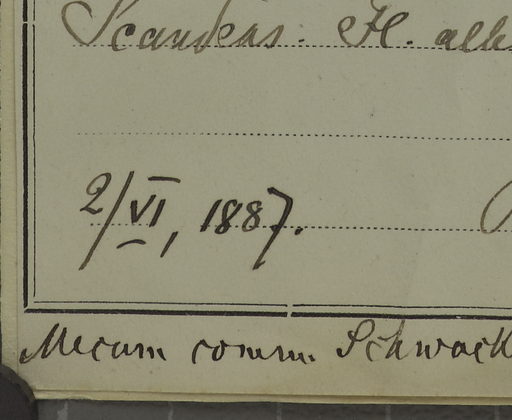 Scandens. Fl. alb
2/VI, 1887.
Mecum comm. Schwack